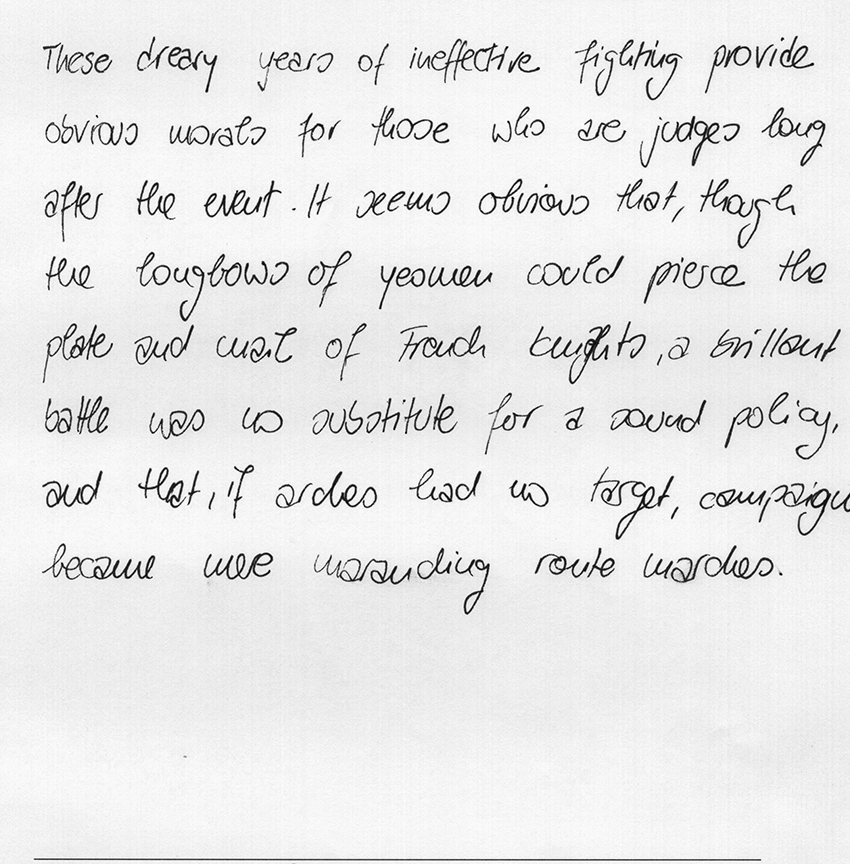 These dreary years of ineffective fighting provide
obvious morals for those who are judges long
after the event. It seems obvious that, though
the longbows of yeomen could pierce the
plate and mail of French knights, a brillant
battle was no substitute for a sound policy,
and that, if arches had no target, campaign
became mere marauding route marches.